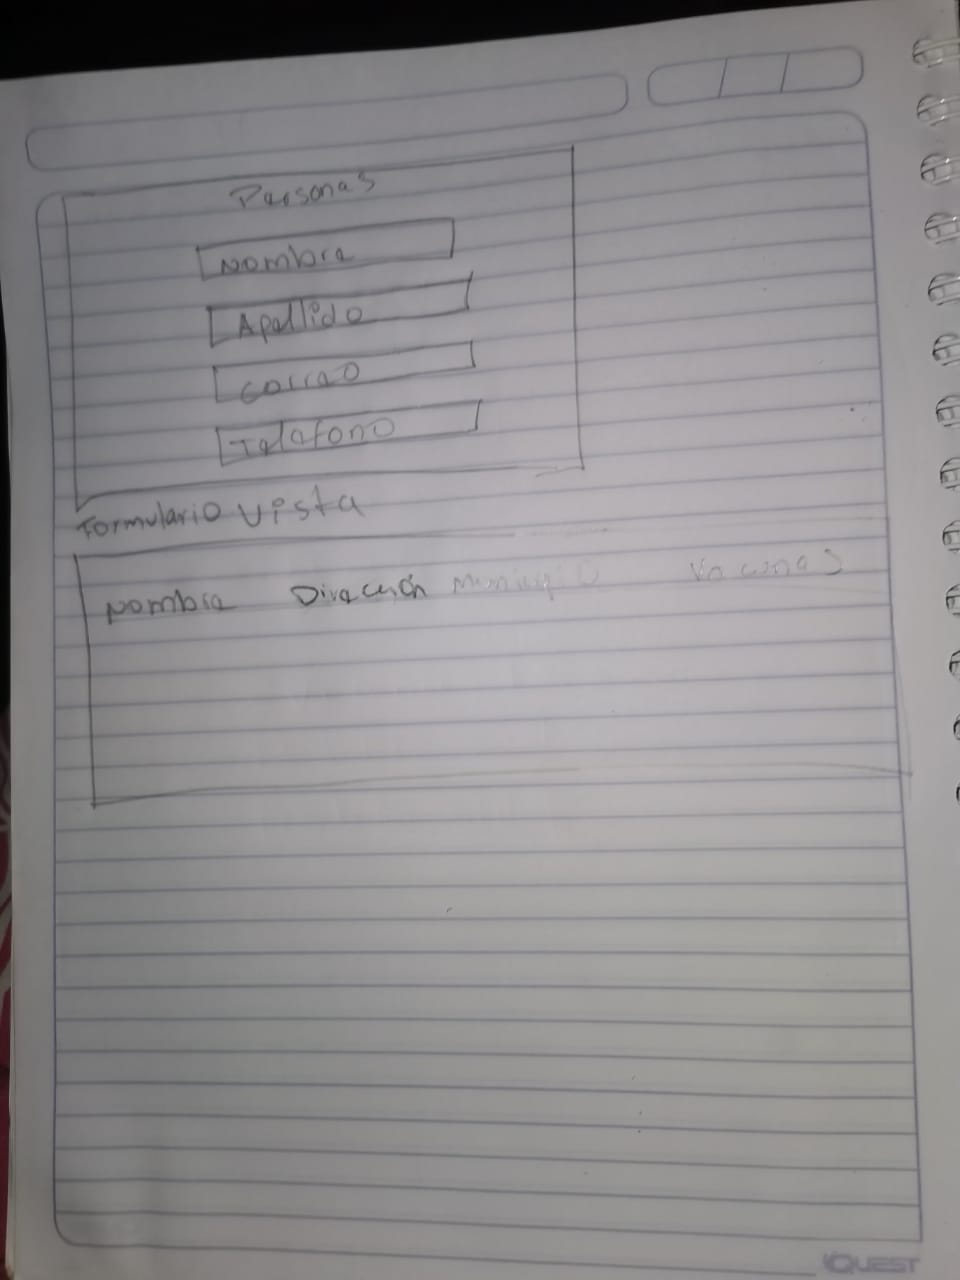 Personas
Nombre
Apellido
Correo
Telefono
Formulario Vista
Nombre Dirección Municipio Vacunas
QUEST